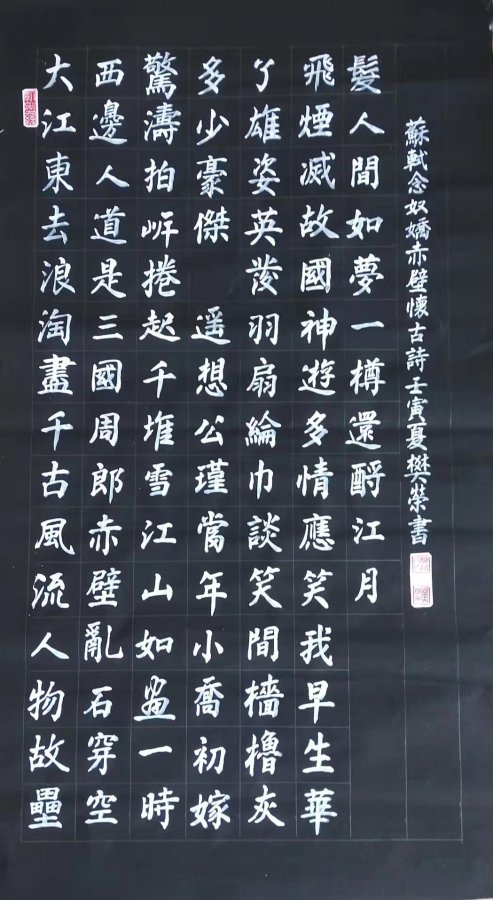 大江東去浪淘盡千古風流人物故壘
西邊人道是三國周郎赤壁亂石穿空
驚濤拍岍捲起千堆雪江山如畫一時
多少豪傑 遥想公瑾當年小喬初嫁
了雄姿英發羽扇綸巾談笑間檣櫓灰
飛煙滅故國神遊多情應笑我早生華
髮人間如夢一樽還酹江月
蘇軾念奴嬌赤壁懷古詩壬寅夏樊榮書